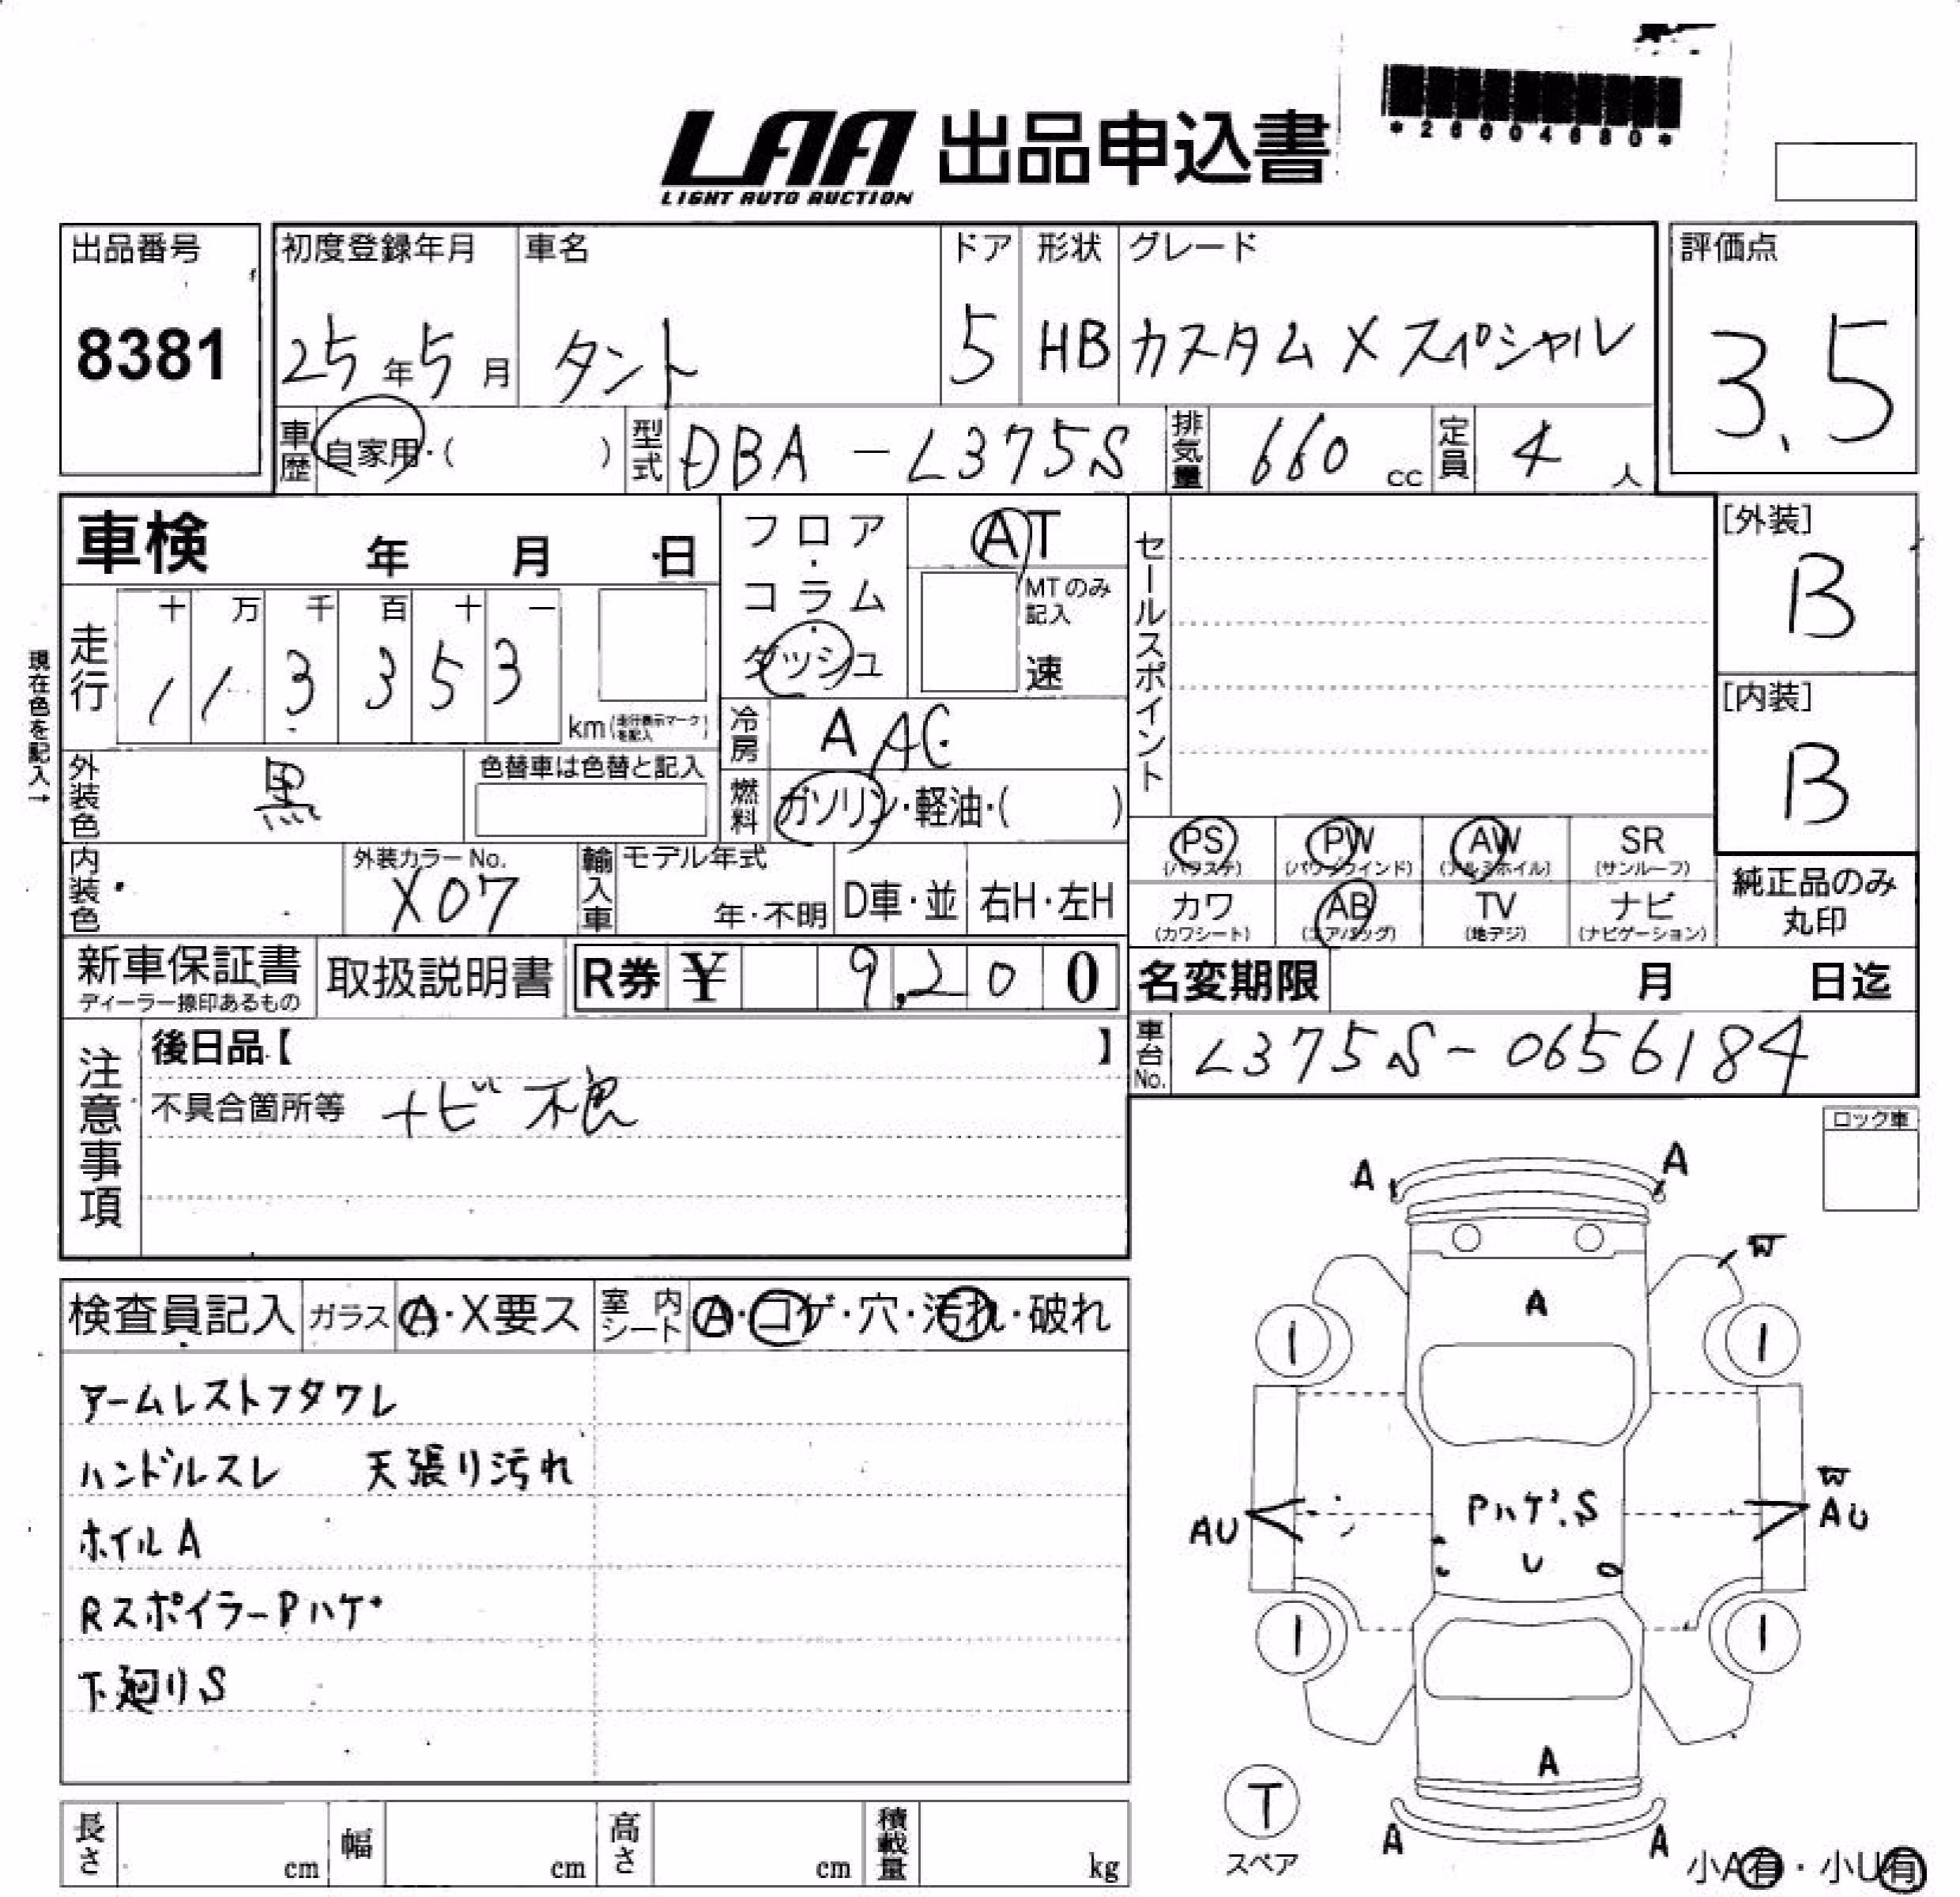 *26004680*
LAA 出品申込書
LIGHT AUTO AUCTION
出品番号 初度登録年月 車名 ドア 形状 グレード 評価点
8381 25年5月 タント 5 HB カスタムXスペシャル 3.5
車歴 自家用・( ) 型式 DBA-L375S 排気量 660cc 定員 4人
車検 年 月 日
フロア・コラム・ダッシュ
AT
MTのみ記入
速
セールスポイント
[外装]
B
現在色を記入→
走行
十 万 千 百 十 一
1 1 3 3 5 3
km(走行表示マークを記入)
[内装]
B
冷房 A AC
外装色 黒 色替車は色替と記入
燃料 ガソリン・軽油・( )
PS PW AW SR
(パワステ) (パワーウインド) (アルミホイル) (サンルーフ)
内装色 外装カラーNo. X07 輸入車 モデル年式 年・不明 D車・並 右H・左H
カワ AB TV ナビ
(カワシート) (エアバッグ) (地デジ) (ナビゲーション)
純正品のみ
丸印
新車保証書 取扱説明書 R券 ¥ 9,200
ディーラー捺印あるもの
名変期限 月 日迄
車台No. L375S-0656184
注意事項
後日品【 】
不具合箇所等 ナビ不良
ロック車
検査員記入 ガラス A・X要ス 室内シート A・コゲ・穴・汚れ・破れ
アームレストフタワレ
ハンドルスレ 天張り汚れ
ホイルA
RスポイラーPハゲ
下廻りS
A A
W
A
1 1
W
AU PハゲS AU
U
1 1
A
T
スペア
A A
小A有・小U有
長さ cm 幅 cm 高さ cm 積載量 kg